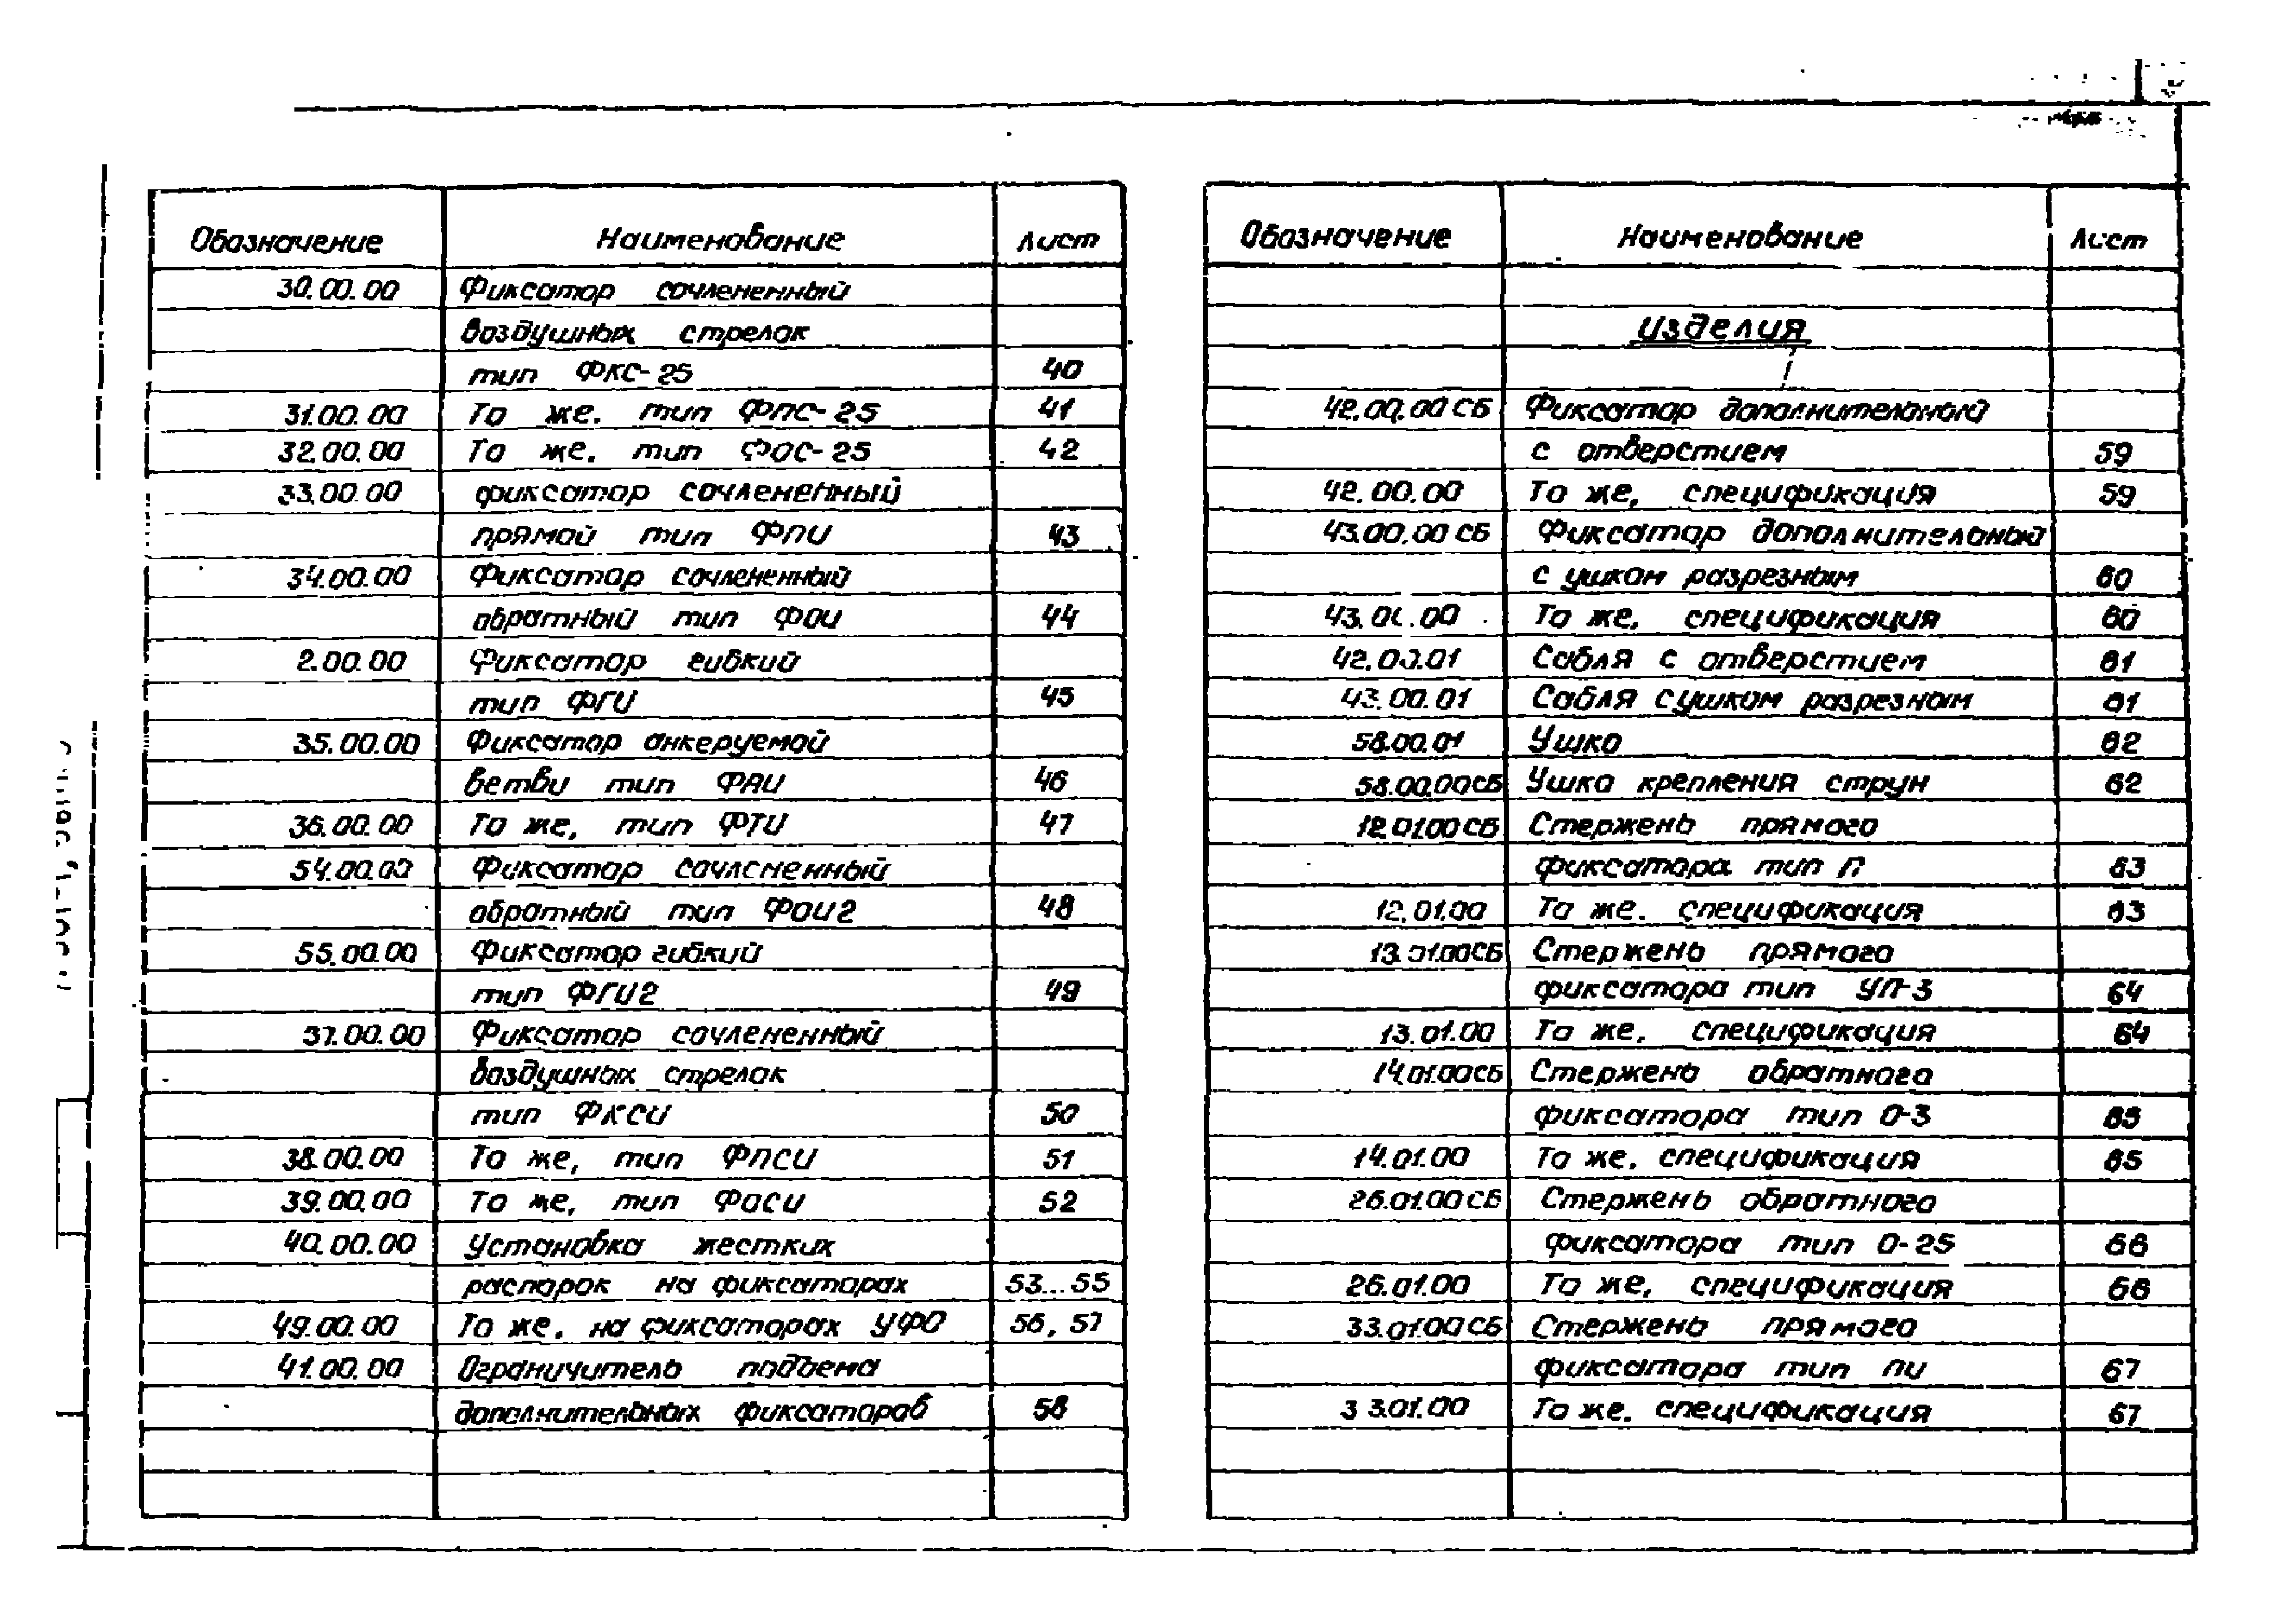 Обозначение Наименование Лист
30.00.00 Фиксатор сочлененный
воздушных стрелок
тип ФКС-25 40
31.00.00 То же. тип ФПС-25 41
32.00.00 То же. тип ФОС-25 42
33.00.00 фиксатор сочлененный
прямой тип ФПИ 43
34.00.00 Фиксатор сочлененный
обратный тип ФОИ 44
2.00.00 Фиксатор гибкий
тип ФГИ 45
35.00.00 Фиксатор анкеруемой
ветви тип ФАИ 46
36.00.00 То же, тип ФТИ 47
54.00.00 Фиксатор сочлененный
обратный тип ФОИ2 48
55.00.00 Фиксатор гибкий
тип ФГИ2 49
37.00.00 Фиксатор сочлененный
воздушных стрелок
тип ФКСИ 50
38.00.00 То же, тип ФПСИ 51
39.00.00 То же, тип ФОСИ 52
40.00.00 Установка жестких
распорок на фиксаторах 53...55
49.00.00 То же. на фиксаторах УФО 56, 57
41.00.00 Ограничитель подъема
дополнительных фиксаторов 58
Обозначение Наименование Лист
изделия
42.00.00 СБ Фиксатор дополнительный
с отверстием 59
42.00.00 То же, спецификация 59
43.00.00 СБ Фиксатор дополнительный
с ушком разрезным 60
43.00.00 То же, спецификация 60
42.00.01 Сабля с отверстием 61
43.00.01 Сабля с ушком разрезным 61
58.00.01 Ушко 62
58.00.00СБ Ушко крепления струн 62
12.01.00 СБ Стержень прямого
фиксатора тип П 63
12.01.00 То же. спецификация 63
13.01.00СБ Стержень прямого
фиксатора тип УП-3 64
13.01.00 То же, спецификация 64
14.01.00СБ Стержень обратного
фиксатора тип О-3 65
14.01.00 То же. спецификация 65
26.01.00 СБ Стержень обратного
фиксатора тип О-25 66
26.01.00 То же, спецификация 66
33.01.00 СБ Стержень прямого
фиксатора тип ПИ 67
33.01.00 То же. спецификация 67